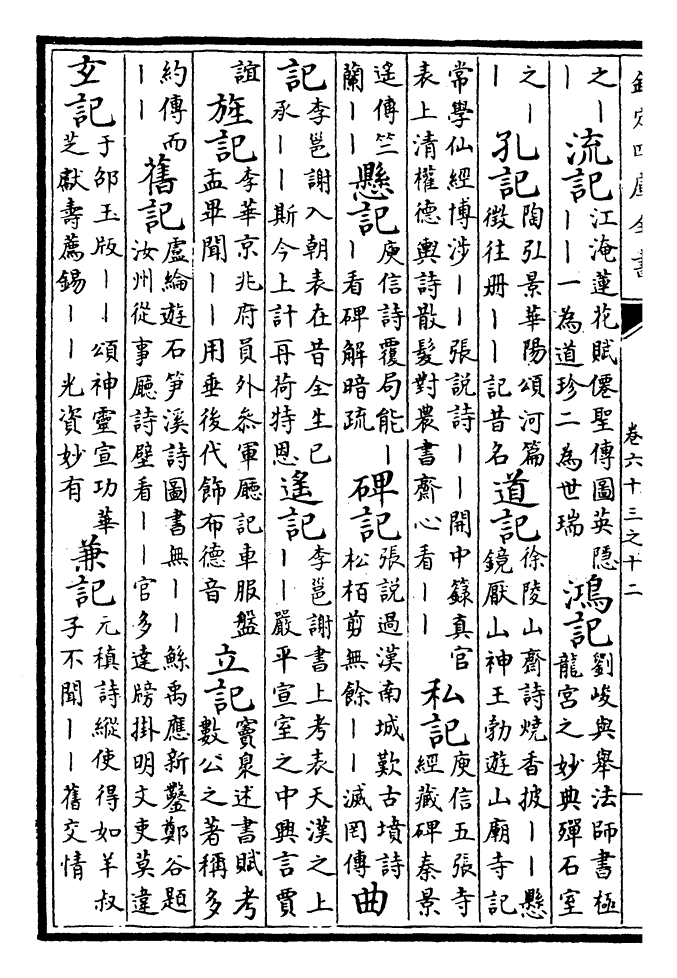 欽定四庫全書
卷六十三之十二
之丨丨流記江淹蓮花賦僊聖傳圖英隠丨丨一為道珍二為世瑞鴻記劉峻與舉法師書極龍宮之妙典殫石室
之丨丨孔記陶弘景華陽頌河篇徴往册丨丨記昔名道記徐陵山齋詩燒香披丨丨懸鏡厭山神王勃遊山廟寺記
常學仙經博涉丨丨張説詩丨丨開中籙真官表上清權德輿詩散髮對農書齋心看丨丨私記庾信五張寺經藏碑秦景
遙傳竺蘭丨丨懸記庾信詩覆局能丨丨看碑解暗疏碑記張説過漢南城歎古墳詩松栢剪無餘丨丨滅罔傳曲
記李邕謝入朝表在昔全生已承丨丨斯今上計再荷特恩遙記李邕謝書上考表天漢之上丨丨嚴平宣室之中興言賈
誼旌記李華京兆府員外叅軍廳記車服盤盂畢聞丨丨用垂後代飾布德音立記竇泉述書賦考數公之著稱多
約傳而丨丨舊記盧綸遊石笋溪詩圖書無丨丨鯀禹應新鑿鄭谷題汝州從事廳詩壁看丨丨官多達牓掛明文吏莫違
𤣥記于邵玉版丨丨頌神靈宣功華芝獻壽薦錫丨丨光資妙有兼記元稹詩縱使得如羊叔子不聞丨丨舊交情